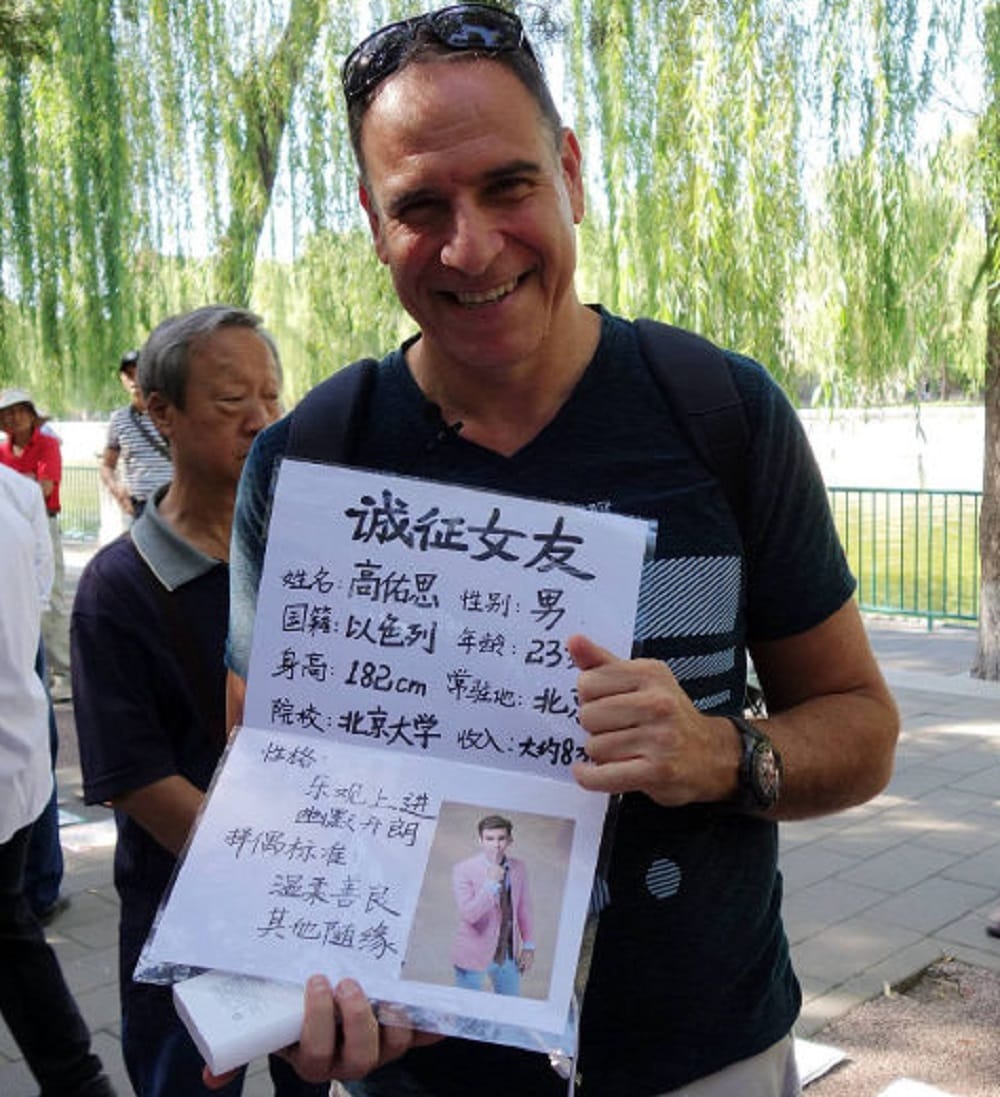 诚征女友
姓名：高佑思 性别：男
国籍：以色列 年龄：23
身高：182cm 常驻地：北
院校：北京大学 收入：大约8
性格：
乐观上进
幽默开朗
择偶标准：
温柔善良
其他随缘